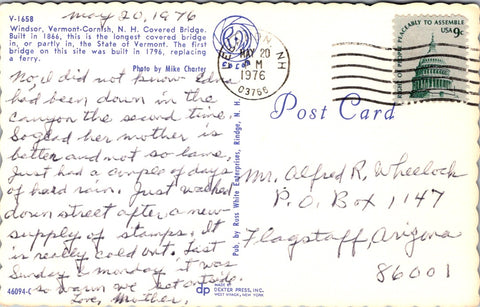 May 20, 1976
V-165B
Windsor, Vermont-Cornish, N. H. Covered Bridge.
Built in 1866, this is the longest covered bridge
in, or partly in, the State of Vermont. The first
bridge on this site was built in 1796, replacing
a ferry.
Photo by Mike Charter
No, I did not know Edna
had been down in the
canyon the second time.
So glad her mother is
better and not so lame.
Just had a couple of days
of hard rain. Just walked
down street after a new
supply of stamps. It
is really cold out. Last
Sunday & Monday it was
so warm we sat outside.
Love, Mother.
46094-C
Pub. by Russ White Enterprises, Rindge, N. H.
MADE BY
dp DEXTER PRESS, INC.
WEST NYACK, NEW YORK
NH
MAY 20
M
1976
03766
RIGHT OF PEOPLE PEACEABLY TO ASSEMBLE
USA 9c
Post Card
Mr. Alfred R. Wheelock
P.O. Box 1147
Flagstaff, Arizona
86001